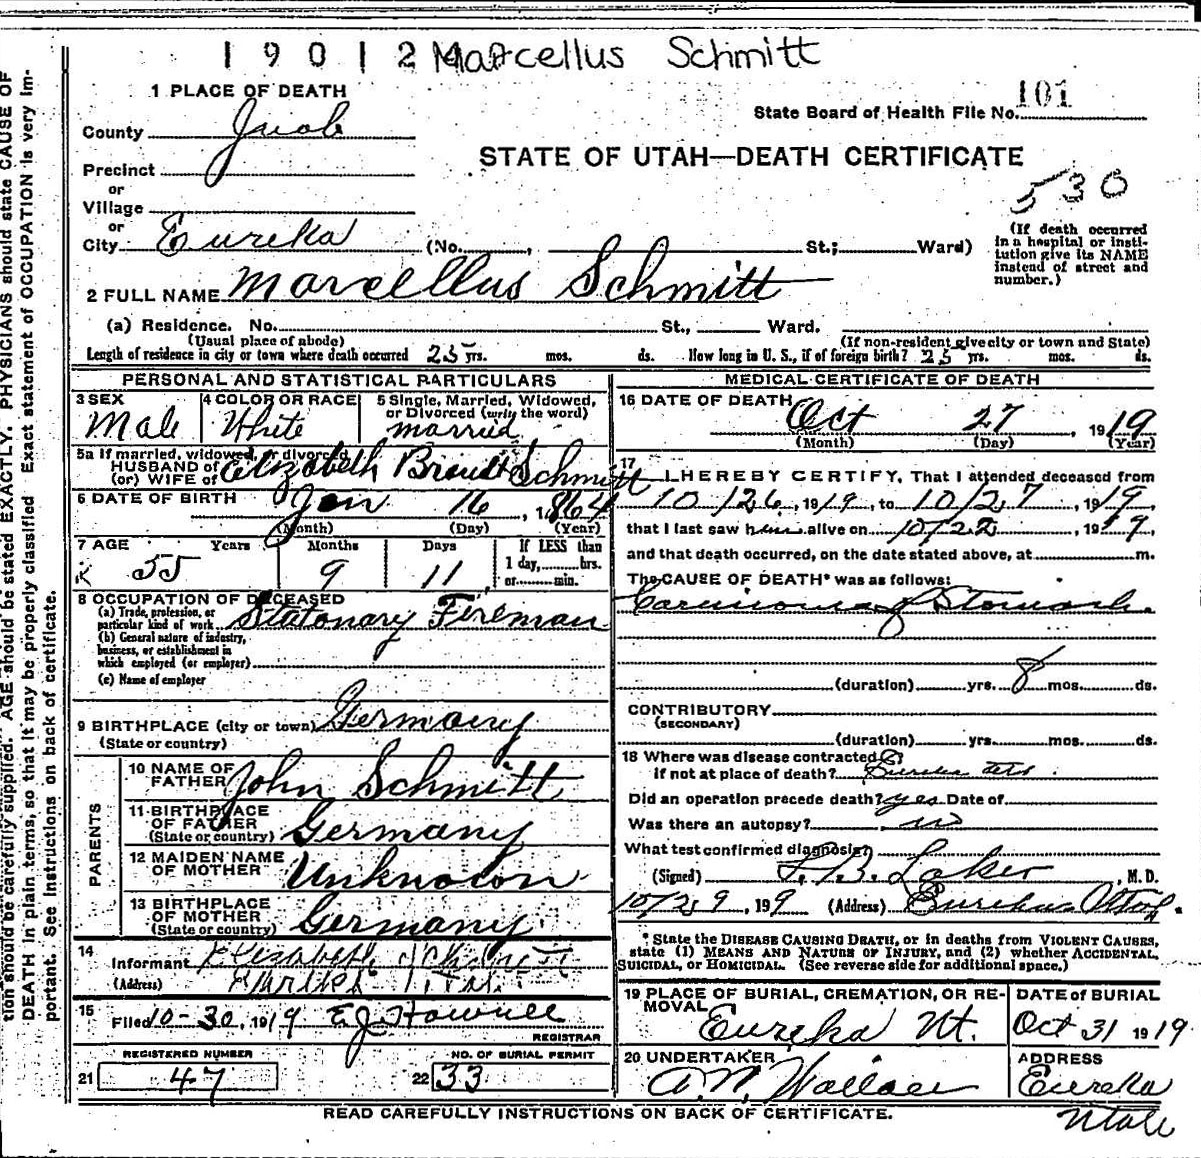 19012 Marcellus Schmitt
1 PLACE OF DEATH
101
State Board of Health File No.
County Juab
STATE OF UTAH—DEATH CERTIFICATE
Precinct
or
530
Village
or
City Eureka (No. , St.; Ward)
(If death occurred in a hospital or insti-
tution give its NAME
instead of street and
number.)
2 FULL NAME Marcellus Schmitt
(a) Residence. No. St., Ward.
(Usual place of abode) (If non-resident give city or town and State)
Length of residence in city or town where death occurred 25 yrs. mos. ds. How long in U. S., if of foreign birth? 25 yrs. mos. ds.
PERSONAL AND STATISTICAL PARTICULARS
3 SEX 4 COLOR OR RACE 5 Single, Married, Widowed,
or Divorced (write the word)
Male White married
5a If married, widowed, or divorced
HUSBAND of
(or) WIFE of Elizabeth Brandt Schmitt
6 DATE OF BIRTH Jan 16, 1864
(Month) (Day) (Year)
7 AGE Years Months Days If LESS than
1 day, hrs.
or min.
55 9 11
8 OCCUPATION OF DECEASED
(a) Trade, profession, or
particular kind of work Stationary Fireman
(b) General nature of industry,
business, or establishment in
which employed (or employer)
(c) Name of employer
9 BIRTHPLACE (city or town) Germany
(State or country)
PARENTS
10 NAME OF
FATHER John Schmitt
11 BIRTHPLACE
OF FATHER
(State or country) Germany
12 MAIDEN NAME
OF MOTHER Unknown
13 BIRTHPLACE
OF MOTHER
(State or country) Germany
14
Informant Elizabeth Schmitt
(Address) Eureka Utah
15
Filed 10-30, 1919 E.J. Howell
REGISTRAR
REGISTERED NUMBER NO. OF BURIAL PERMIT
21 47 22 33
MEDICAL CERTIFICATE OF DEATH
16 DATE OF DEATH Oct 27, 1919
(Month) (Day) (Year)
17
I HEREBY CERTIFY, That I attended deceased from
10/26, 1919, to 10/27, 1919,
that I last saw him alive on 10/22, 1919,
and that death occurred, on the date stated above, at m.
The CAUSE OF DEATH* was as follows:
Carcinoma of Stomach.
(duration) yrs. 8 mos. ds.
CONTRIBUTORY
(SECONDARY)
(duration) yrs. mos. ds.
18 Where was disease contracted
if not at place of death? Eureka Utah.
Did an operation precede death? yes Date of
Was there an autopsy? no
What test confirmed diagnosis?
(Signed) Laker, M. D.
10/29, 199 (Address) Eureka Utah.
* State the DISEASE CAUSING DEATH, or in deaths from VIOLENT CAUSES,
state (1) MEANS AND NATURE OF INJURY, and (2) whether ACCIDENTAL,
SUICIDAL, or HOMICIDAL. (See reverse side for additional space.)
19 PLACE OF BURIAL, CREMATION, OR RE-
MOVAL Eureka Ut.
DATE of BURIAL
Oct 31 1919
20 UNDERTAKER
A.N. Wallace
ADDRESS
Eureka
Utah
READ CAREFULLY INSTRUCTIONS ON BACK OF CERTIFICATE.
tion should be carefully supplied. AGE should be stated EXACTLY. PHYSICIANS should state CAUSE OF
DEATH in plain terms, so that it may be properly classified. Exact statement of OCCUPATION is very im-
portant. See instructions on back of certificate.